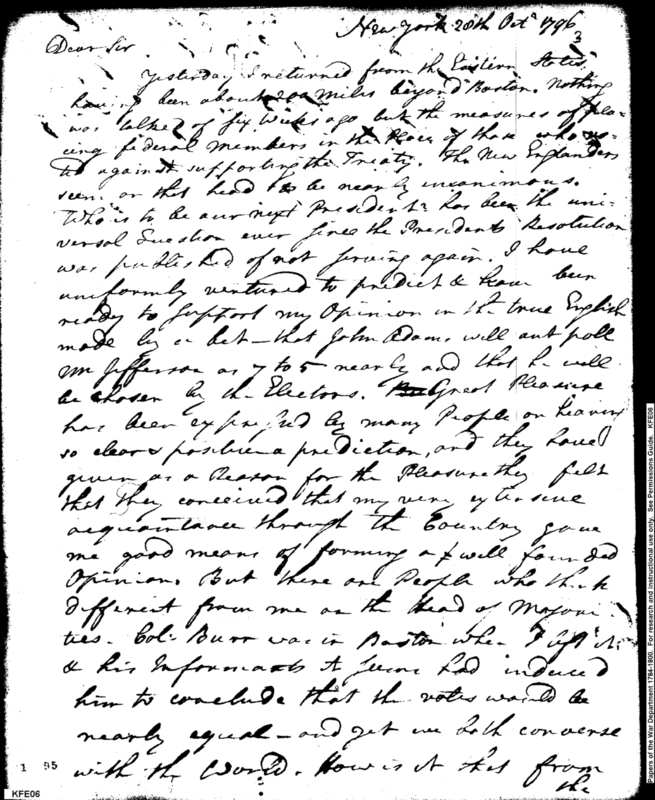 New York 28th Octr 1796
3
Dear Sir
Yesterday I returned from the Eastern States,
having been about 200 miles beyond Boston. Nothing
was talked of six Weeks ago but the measures of pla-
cing federal members in the Place of those who vo-
ted against supporting the Treaty. The New Englanders
seem on that head to be nearly unanimous.
Who is to be our next President? has been the uni-
versal Question ever since the Presidents Resolution
was published of not serving again. I have
uniformly ventured to predict & have been
ready to support my Opinion in the true English
mode by a bet – that John Adams will out poll
Mr Jefferson as 7 to 5 nearly and that he will
be chosen by the Electors. Great Pleasure
has been expressed by many People on hearing
so clear & positive a prediction, and they have
given as a Reason for the Pleasure they felt
that they conceived that my very extensive
acquaintance through the Country gave
me good means of forming a well founded
Opinion. But there are People who think
different from me on the Head of Majori-
ties. Col: Burr was in Boston when I left it
& his Informants it seems had induced
him to conclude that the votes would be
nearly equal – and yet we both converse
with the World. How is it that from
the
1 95
KFE06
Papers of the War Department 1784-1800. For research and instructional use only. See Permissions Guide. KFE06